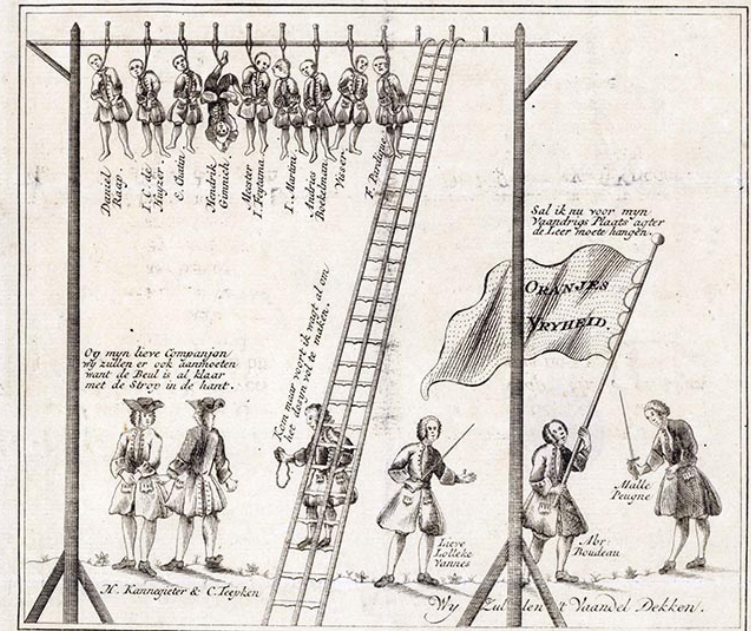 Daniel
Raap.
I. C. de
Huyzer.
E. Chatin
Hendrik
Gimnich.
Meester
I. Feytama
I. Martini
Andries
Boekelman
Visser.
F. Bordigne
Sal ik nu voor myn
Vaandrigs Plaats agter
de Leer moete hangen.
ORANJES
VRYHEID.
Oy myn lieve Companjon
wy zullen er ook aanmoeten
want de Beul is al klaar
met de Strop in de hant.
Kom maar voort ik wagt al om
het dosyn vol te maken.
H. Kannegieter & C. Teepken
Lieve
Lolleke
Vannes
Abr:
Boudeau
Malle
Peugne
Wy Zullen 't Vaandel Dekken.